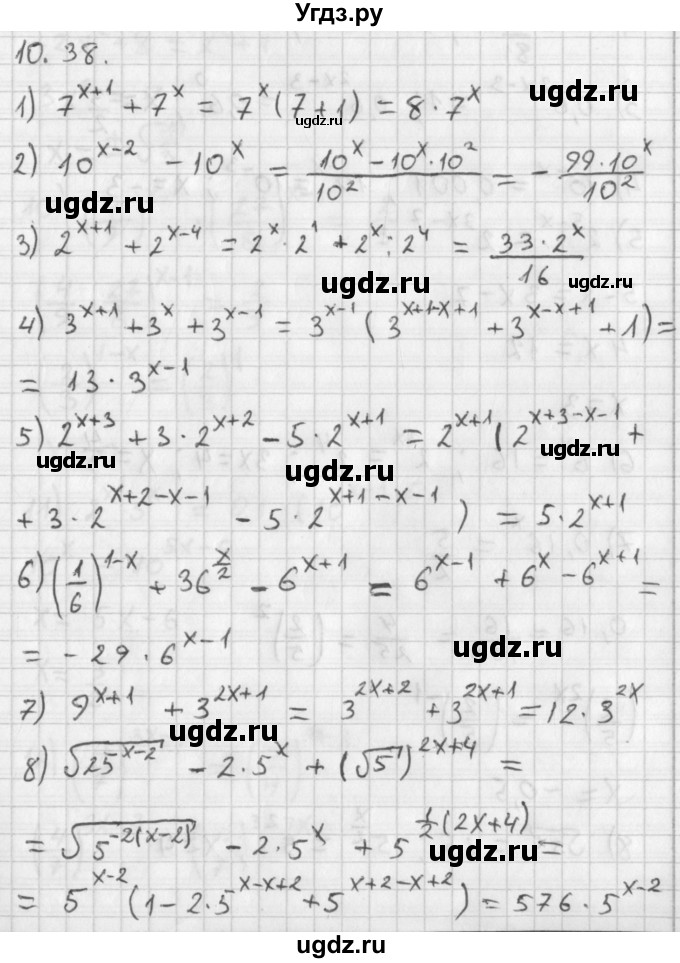 Угдз.ру
10.38.
1) 7^{x+1} + 7^x = 7^x (7+1) = 8 · 7^x
ugdz.ru
ugdz.ru
2) 10^{x-2} - 10^x = \frac{10^x - 10^x · 10^2}{10^2} = - \frac{99 · 10^x}{10^2}
ugdz.ru
ugdz.ru
3) 2^{x+1} + 2^{x-4} = 2^x · 2^1 + 2^x : 2^4 = \frac{33 · 2^x}{16}
ugdz.ru
ugdz.ru
4) 3^{x+1} + 3^x + 3^{x-1} = 3^{x-1} (3^{x+1-x+1} + 3^{x-x+1} + 1) =
= 13 · 3^{x-1}
5) 2^{x+3} + 3 · 2^{x+2} - 5 · 2^{x+1} = 2^{x+1} (2^{x+3-x-1} +
ugdz.ru
ugdz.ru
ugdz.ru
+ 3 · 2^{x+2-x-1} - 5 · 2^{x+1-x-1} ) = 5 · 2^{x+1}
6) (\frac{1}{6})^{1-x} + 36^{\frac{x}{2}} - 6^{x+1} = 6^{x-1} + 6^x - 6^{x+1} =
= - 29 · 6^{x-1}
ugdz.ru
7) 9^{x+1} + 3^{2x+1} = 3^{2x+2} + 3^{2x+1} = 12 · 3^{2x}
ugdz.ru
8) \sqrt{25^{x-2}} - 2 · 5^x + (\sqrt{5})^{2x+4} =
= \sqrt{5^{-2(x-2)}} - 2 · 5^x + 5^{\frac{1}{2}(2x+4)} =
ugdz.ru
= 5^{x-2} (1 - 2 · 5^{x-x+2} + 5^{x+2-x+2} ) = 576 · 5^{x-2}
ugdz.ru